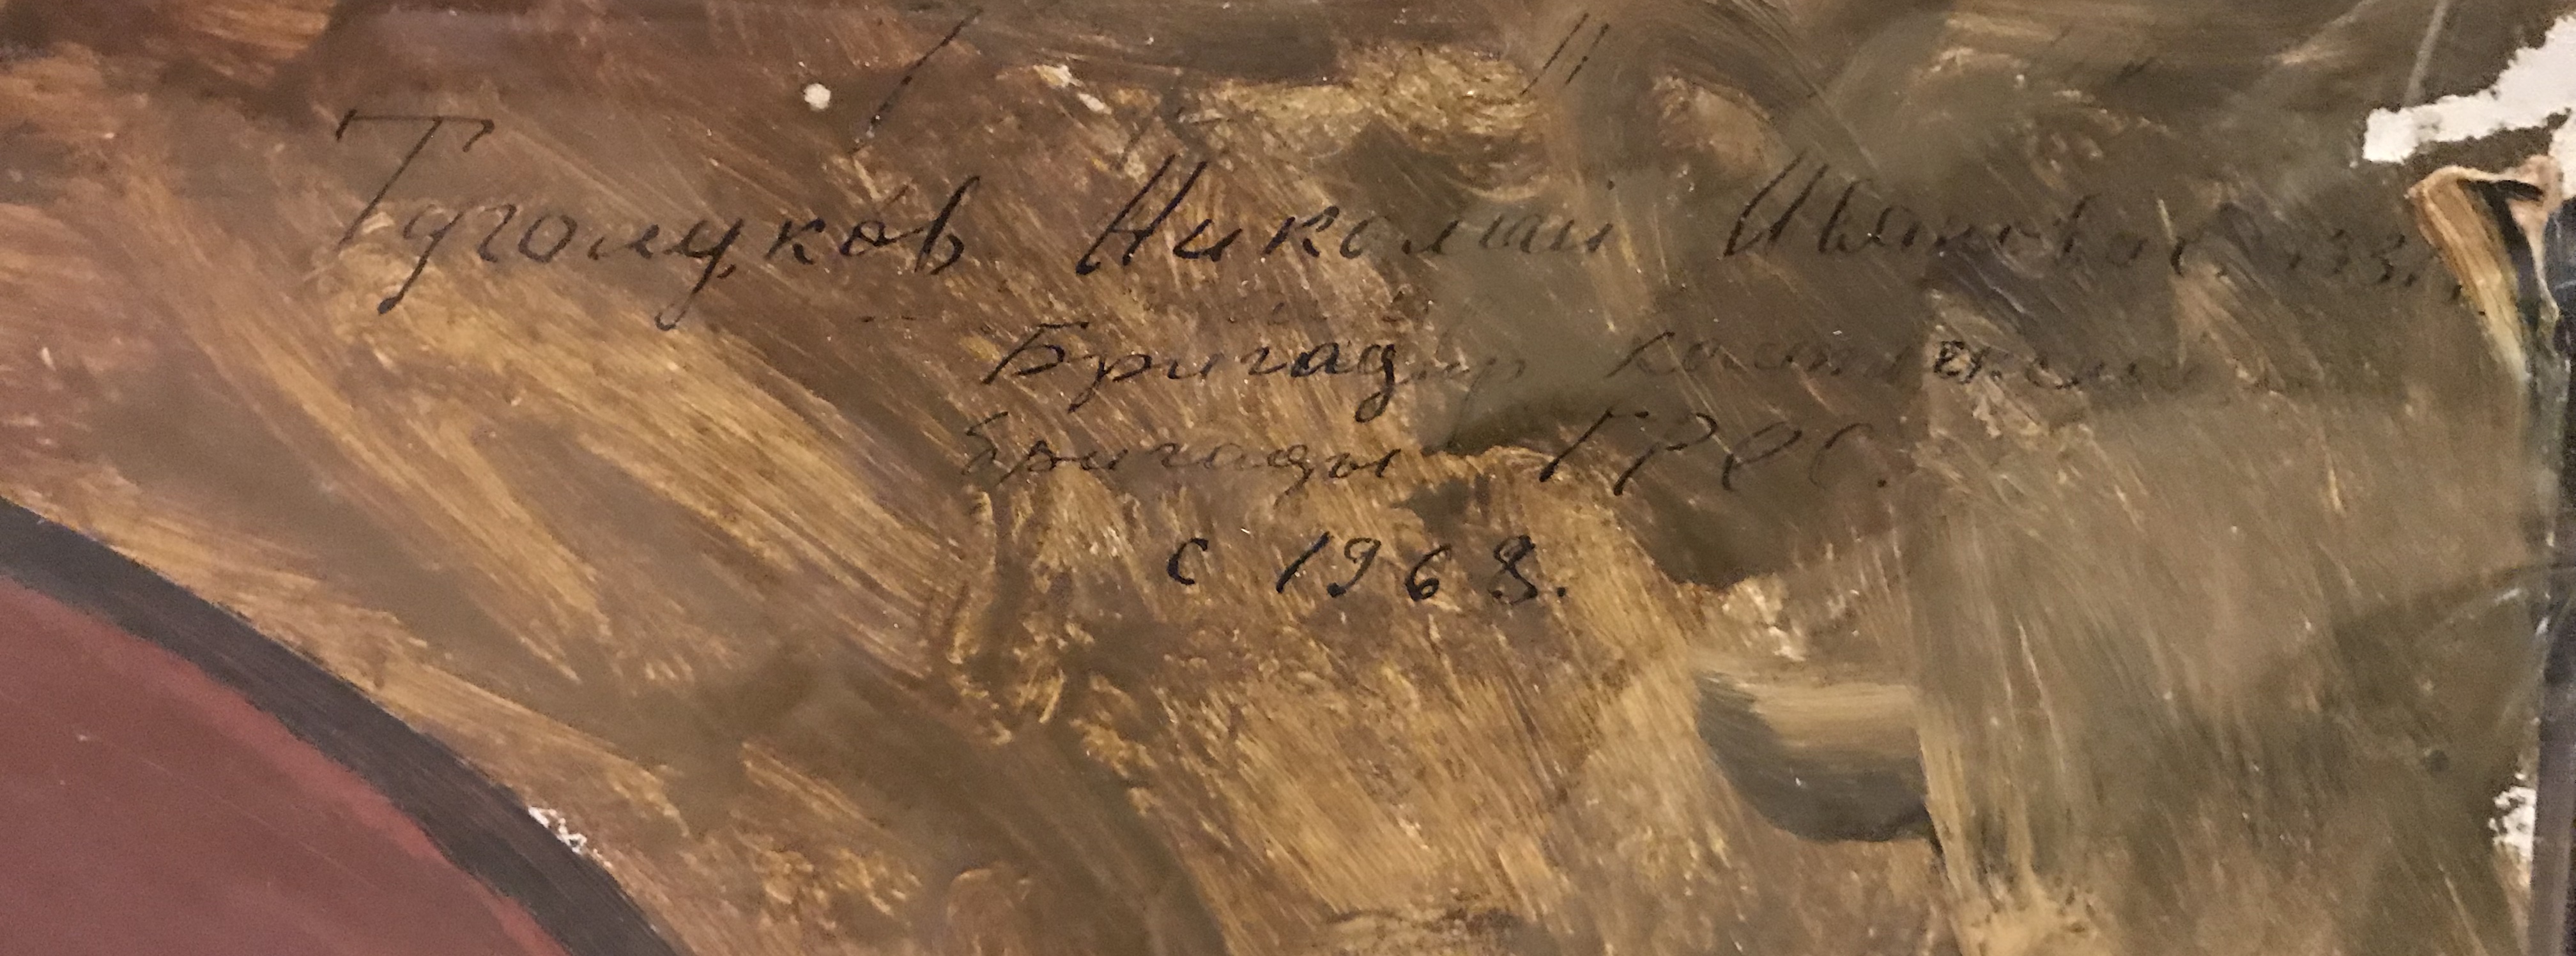 Туголуков Николай Иванович
Бригадир
бригады ГРЭС.
с 1968.